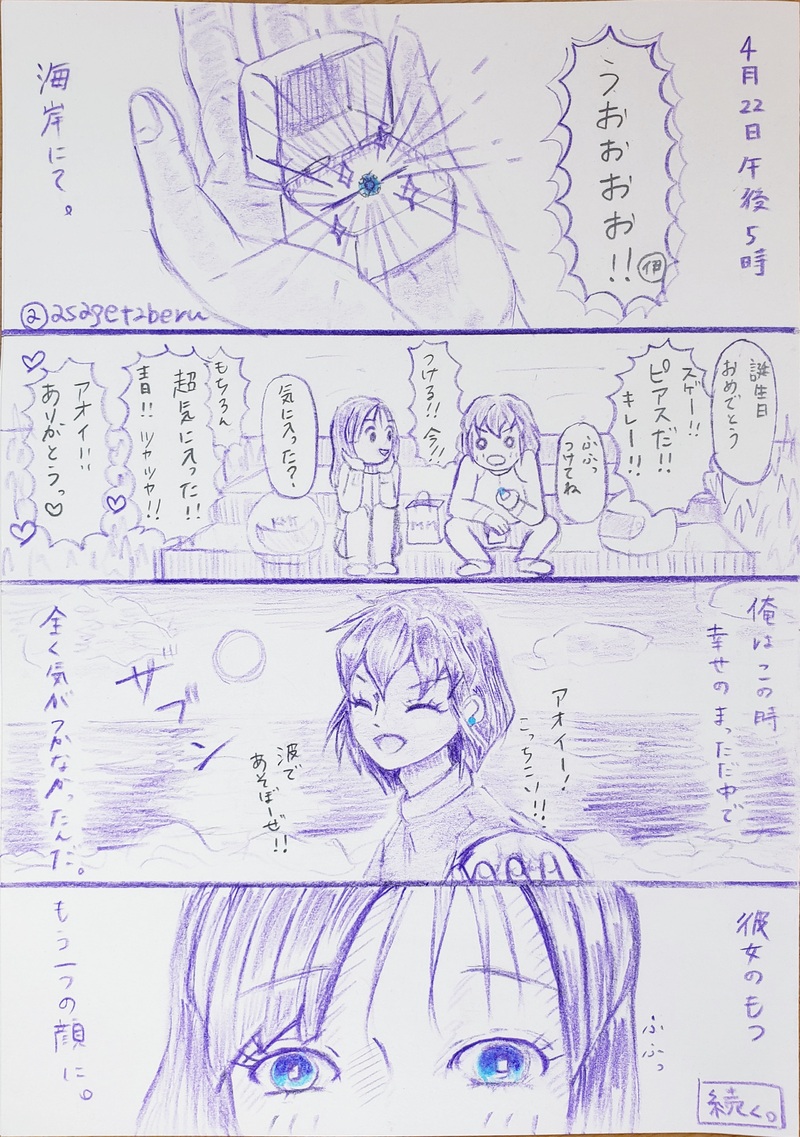 4月22日 午後5時
うおおおお!!
伊
海岸にて。
@asagetaberu
誕生日
おめでとう
スゲー!!
ピアスだ!!
キレー!!
ふふっ
つけてね
つける!!今!!
気に入った?
もちろん
超気に入った!!
青!!ツャツャ!!
アオイ!!
ありがとうっ♡
俺はこの時
幸せのまっただ中で
アオイー!
こっちこい!!
波で
あそぼーぜ!!
ザブン
全く気がつかなかったんだ。
彼女のもつ
ふふっ
もう一つの顔に。
続く。